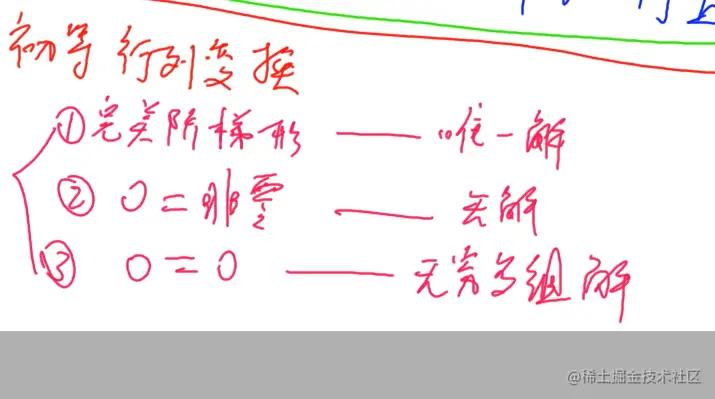 初等行列变换
①完美阶梯形 —— 唯一解
② 0=非零 —— 无解
③ 0=0 —— 无穷多组解
@稀土掘金技术社区